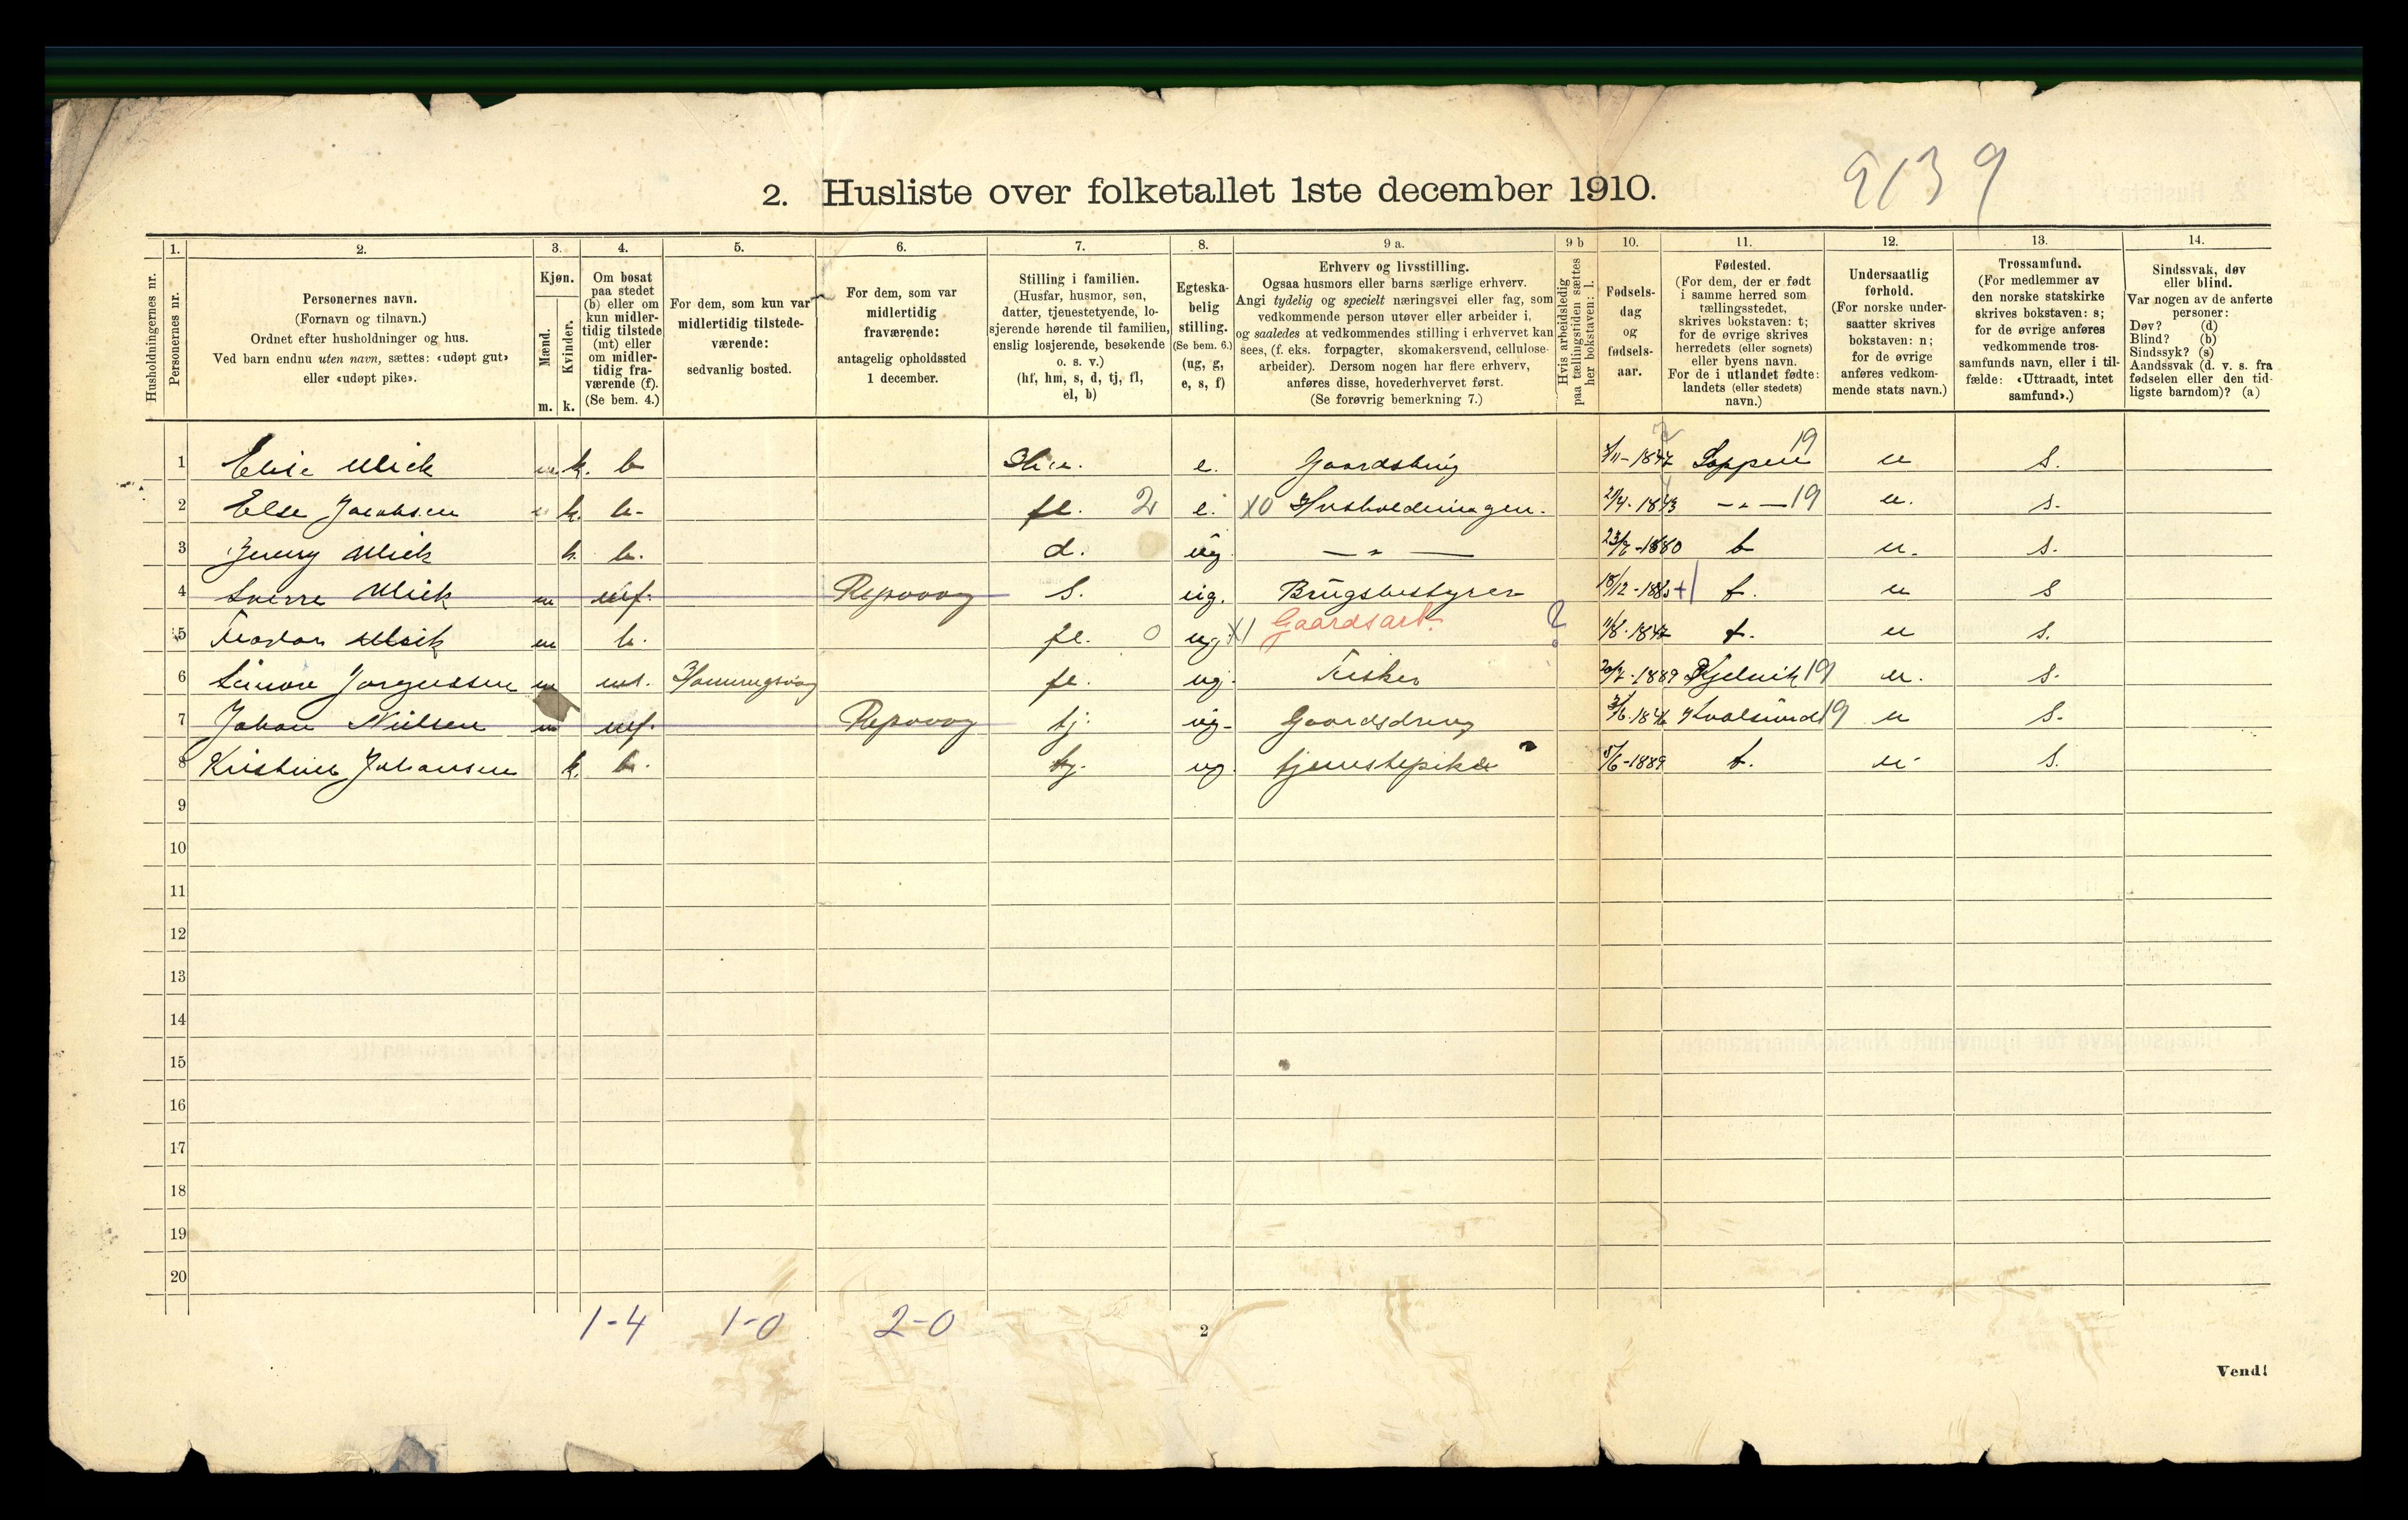 9139
2. Husliste over folketallet 1ste december 1910.
1. 2. 3. 4. 5. 6. 7. 8. 9 a. 9 b 10. 11. 12. 13. 14.
Husholdningernes nr.
Personernes nr.
Personernes navn.
(Fornavn og tilnavn.)
Ordnet efter husholdninger og hus.
Ved barn endnu uten navn, sættes: «udøpt gut»
eller «udøpt pike».
Kjøn.
Mænd.
Kvinder.
m. k.
Om bosat
paa stedet
(b) eller om
kun midler-
tidig tilstede
(mt) eller
om midler-
tidig fra-
værende (f).
(Se bem. 4.)
For dem, som kun var
midlertidig tilstede-
værende:
sedvanlig bosted.
For dem, som var
midlertidig
fraværende:
antagelig opholdssted
1 december.
Stilling i familien.
(Husfar, husmor, søn,
datter, tjenestetyende, lo-
sjerende hørende til familien,
enslig losjerende, besøkende
o. s. v.)
(hf, hm, s, d, tj, fl,
el, b)
Egteska-
belig
stilling.
(Se bem. 6.)
(ug, g,
e, s, f)
Erhverv og livsstilling.
Ogsaa husmors eller barns særlige erhverv.
Angi tydelig og specielt næringsvei eller fag, som
vedkommende person utøver eller arbeider i,
og saaledes at vedkommendes stilling i erhvervet kan
sees, (f. eks. forpagter, skomakersvend, cellulose-
arbeider). Dersom nogen har flere erhverv,
anføres disse, hovederhvervet først.
(Se forøvrig bemerkning 7.)
Hvis arbeidsledig
paa tællingstiden sættes
her bokstaven: l.
Fødsels-
dag
og
fødsels-
aar.
Fødested.
(For dem, der er født
i samme herred som
tællingsstedet,
skrives bokstaven: t;
for de øvrige skrives
herredets (eller sognets)
eller byens navn.
For de i utlandet fødte:
landets (eller stedets)
navn.)
Undersaatlig
forhold.
(For norske under-
saatter skrives
bokstaven: n;
for de øvrige
anføres vedkom-
mende stats navn.)
Trossamfund.
(For medlemmer av
den norske statskirke
skrives bokstaven: s;
for de øvrige anføres
vedkommende tros-
samfunds navn, eller i til-
fælde: «Uttraadt, intet
samfund».)
Sindssvak, døv
eller blind.
Var nogen av de anførte
personer:
Døv? (d)
Blind? (b)
Sindssyk? (s)
Aandssvak (d. v. s. fra
fødselen eller den tid-
ligste barndom)? (a)
1 Elise Ulich k. b e. Loppen 19 n s.
2 Else Jacobsen k. b. fl. 2 e. X0 Husholdningen. — „ — 19 n. s.
3 Jenny Ulich k b. d. ug — „ — t n. s.
4 Sverre Ulich m mf. Repvaag s. ug. Brugsbestyrer 18/12-1883 +1 t. n s
5 Ulich m b. fl. 0 ug. X1 Gaardsarb. ? t. n s.
6 Jørgensen m mt. Honningsvaag fl. ug. Fisker 20/7-1889 Kjelvik 19 n. s.
7 Johan Nielsen m mf. Repvaag tj. ug. Gaardsdreng Kvalsund 19 n s.
8 Johansen k. b. tj. ug. tjenestepike 5/6-1889 t. n. s.
9
10
11
12
13
14
15
16
17
18
19
20
1-4 1-0 2-0
2
Vend!